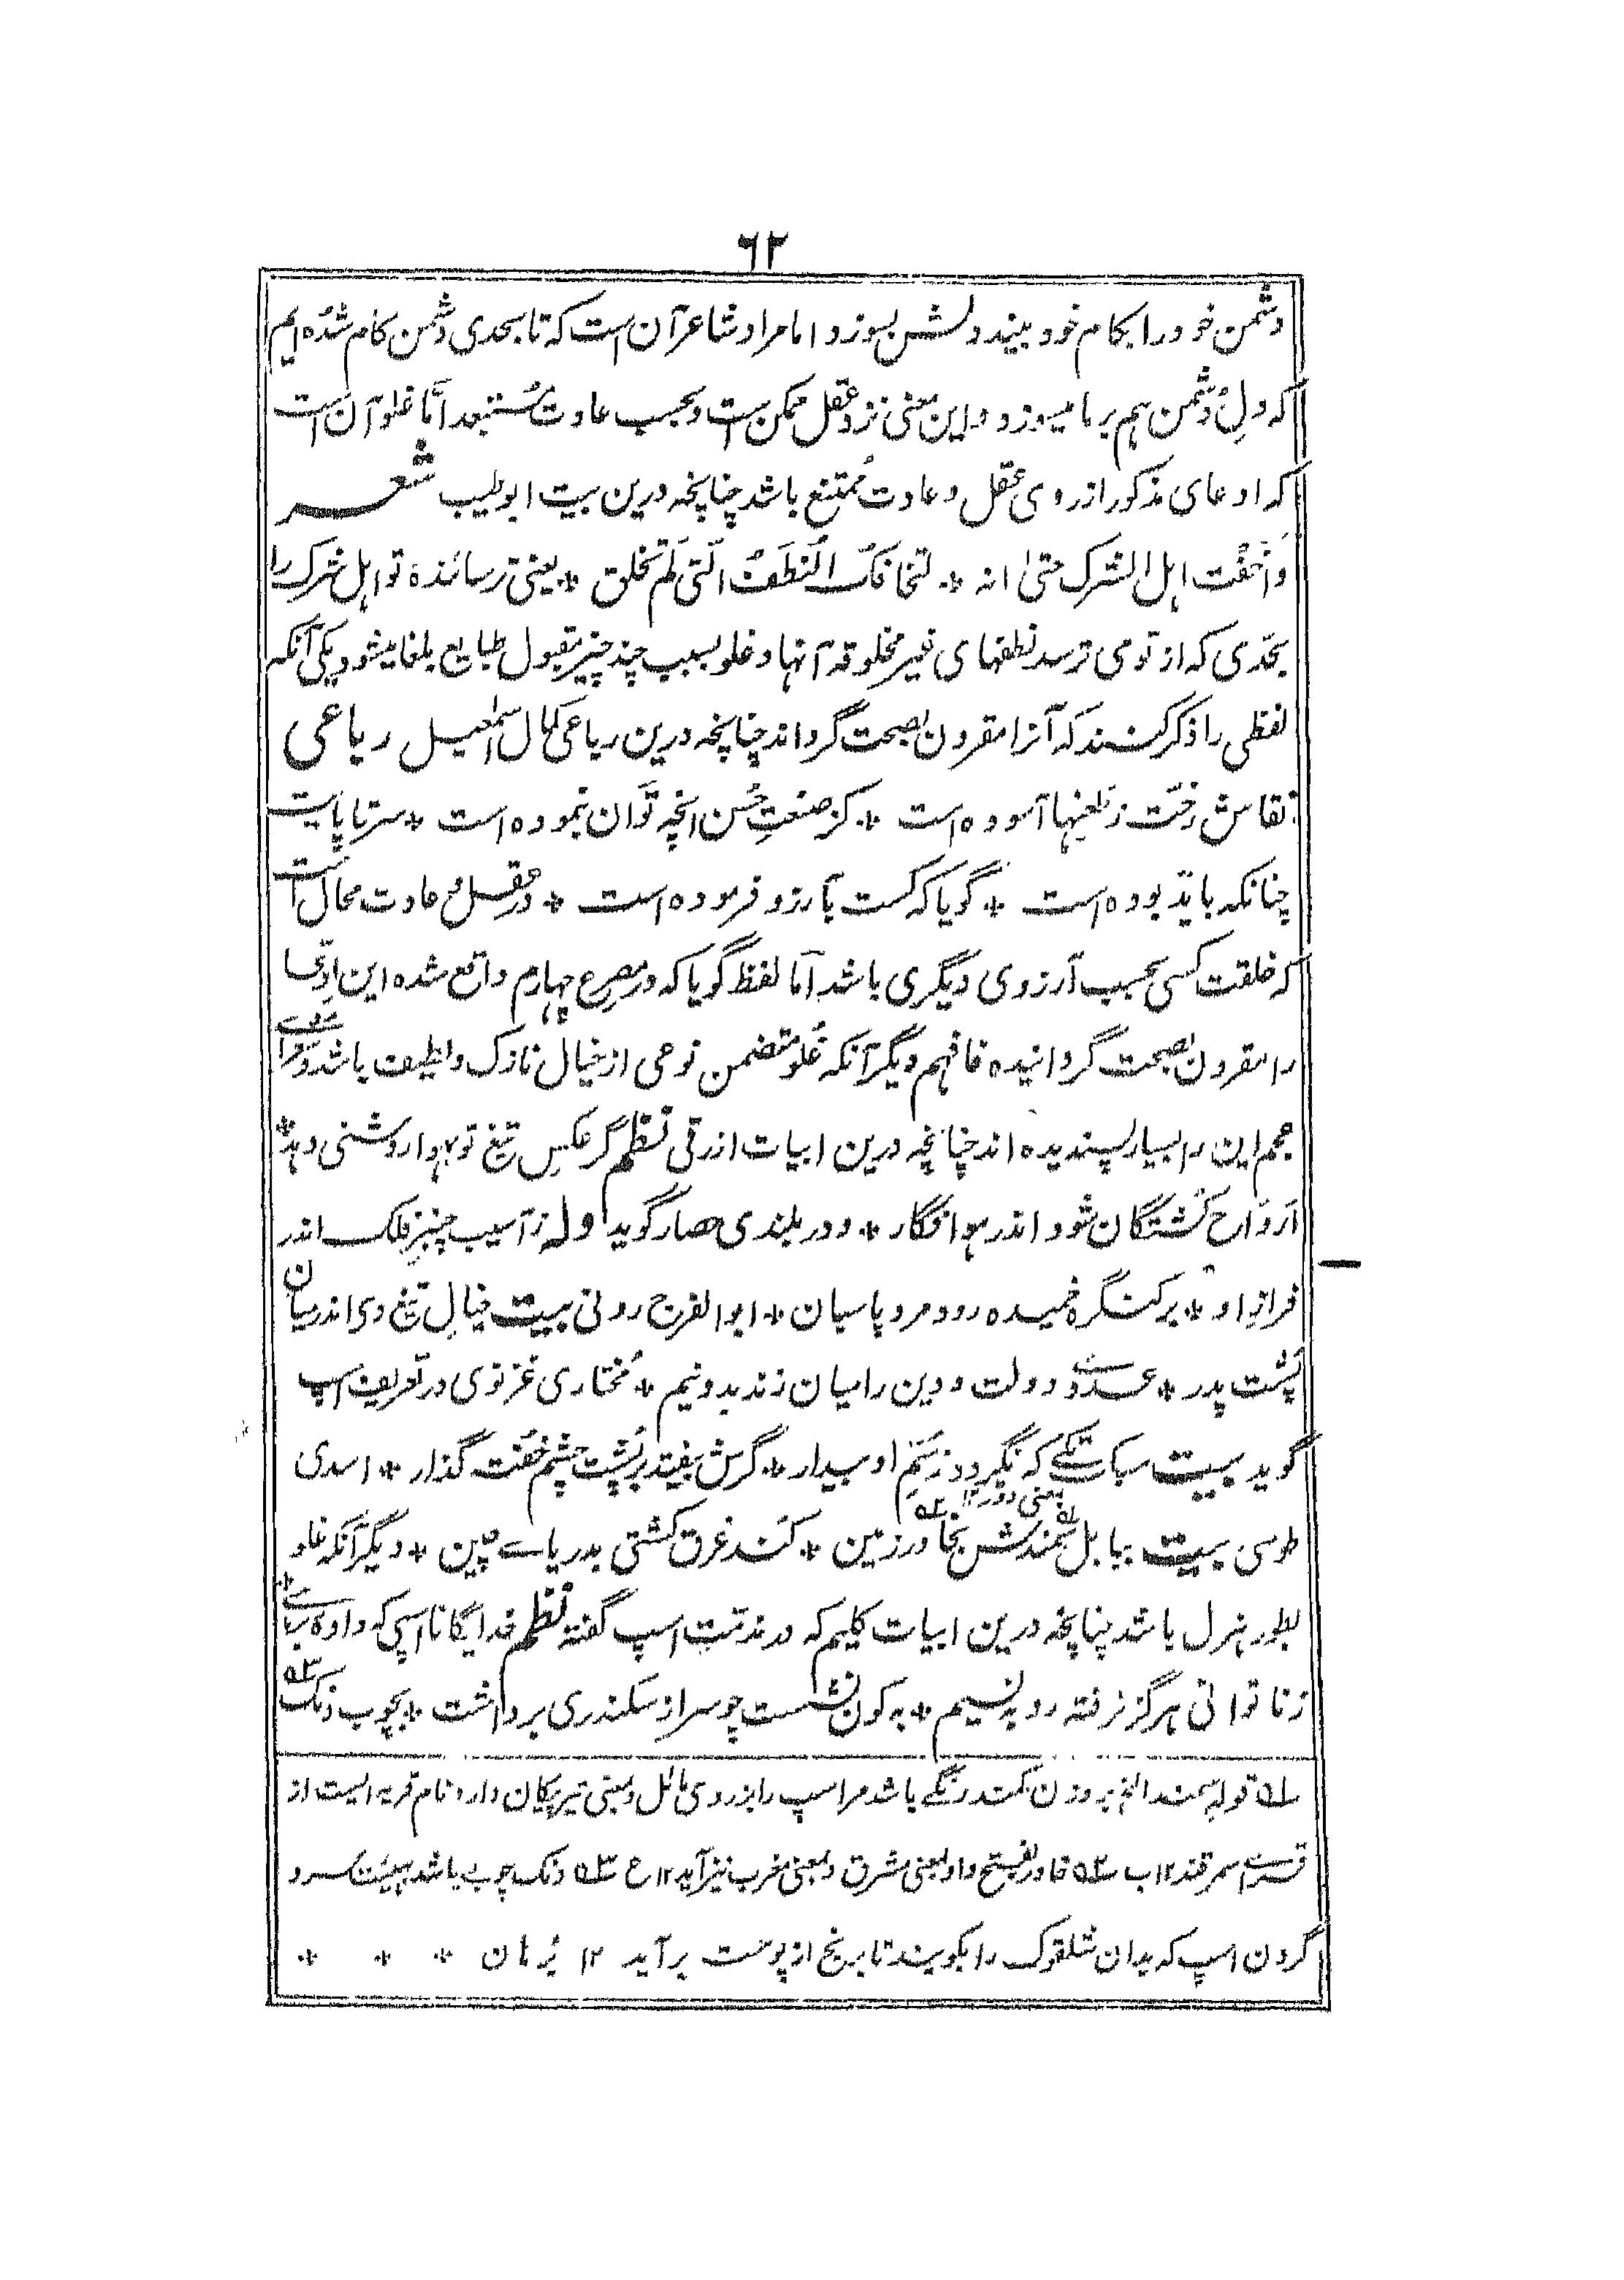 ۶۲
دشمن خود را بکام خود بیند دلش بسوزد اما مراد شاعر آن است که تا بحدی دشمن کام شده ایم
که دلِ دشمن هم بر ما میسوزد و این معنی نزد عقل ممکن است و بحسب عادت مُستبعد امّا غلو آن است
که ادعای مذکور از روی عقل و عادت مُمتنع باشد چنانچه درین بیت ابوطیب شعر
وَاَخَفْت اہل الشرک حتیٰ انہ * لتخافک النُطَفُ الّتی لَم تخلق * یعنی ترسانندہ تو اہل شرک را
بحّدی که از تو می ترسد نطفهای غیر مخلوقہ آنها و غلو بسبب چند چیز مقبول طبایع بلغا میشود یکی آنکه
لفظی را ذکر کنند که آنرا مقرون بصحت گرداند چنانچه درین رباعی کمال اسمٰعیل رباعی
نقاش رخت ز طعنها آسوده است * کز صنعتِ حُسن انچه توان نموده است * سرتا پایت
چنانکه باید بوده است * گویا که کست بآرزو فرموده است * در عقل و عادت محال است
که خلقت کسی بحسب آرزوی دیگری باشد امّا لفظ گویا که در مصرع چهارم واقع شده این ادّعا
را مقرون بصحت گردانیده فافهم دیگر آنکه غُلو متضمن نوعی از خیال نازک و لطیف باشد و شعرای
عجم این را بسیار پسندیده اند چنانچه درین ابیات ازرقی نظم گر عکسِ تیغ تو بهوا روشنی دهد *
ارواح کُشتگان شود اندر هوا فگار * و در بلندی حصار گوید وله ز آسیب چنبرِ فلک اندر
فرازِ او * بر کنگره خمیده رود مرد پاسبان * ابوالفرج رونی بیت خیالِ تیغ وی اندر میان
پُشت پدر * عدوی دولت و دین را میان زند بدونیم * مُختاری غزنوی در تعریف اسپ
گوید بیت سبک تگے که نگردد ز سُم او بیدار * گرش بیفتد بر پُشت چشم خفته گذار * اسدی
یعنی دور ۱۲
طوسی بیت ببابل سمندش بخاور زمین * کُند غرق کشتی بدریاے چین * دیگر آنکه غلو
بطور هزل باشد چنانچه درین ابیات کلیم که در مذمّت اسپ گفته نظم خدایگانا اسپی که دادهٔ بمن *
ز ناتوانی هرگز نرفته رو به نسیم * به کون نشست چو سر از سکندری برداشت * بچوب دنک
۱ قوله سمند الخ بر وزن کمند رنگے باشد مر اسپ را بزردی مائل و بمعنی تیر پیکان دار و نام قریه ایست از
قراے سمرقند ۱۲ ب ۲ خاور بفتح واو بمعنی مشرق و بمعنی مغرب نیز آید ۱۲ ع ۳ دنک چوبے باشد بہیئت سر و
گردن اسپ که بدان شلتوک را بکوبند تا برنج از پوست بر آید ۱۲ بُرهان * * *